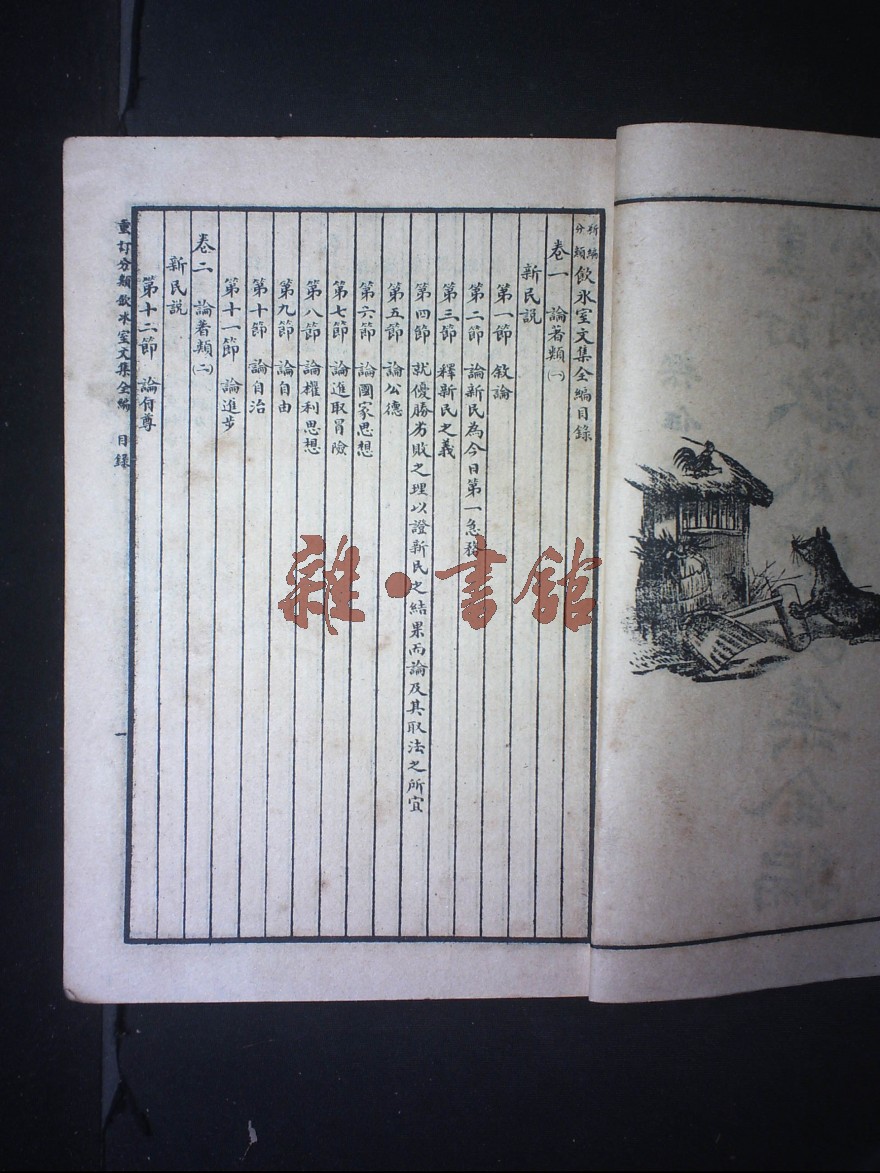 新編分類飲冰室文集全編目錄
卷一 論著類㈠
新民説
第一節 敘論
第二節 論新民為今日第一急務
第三節 釋新民之義
第四節 就優勝劣敗之理以證新民之結果而論及其取法之所宜
第五節 論公德
第六節 論國家思想
第七節 論進取冒險
第八節 論權利思想
第九節 論自由
第十節 論自治
第十一節 論進步
卷二 論著類㈡
新民説
第十二節 論自尊
重訂分類飲冰室文集全編 目錄 一
雜·書館